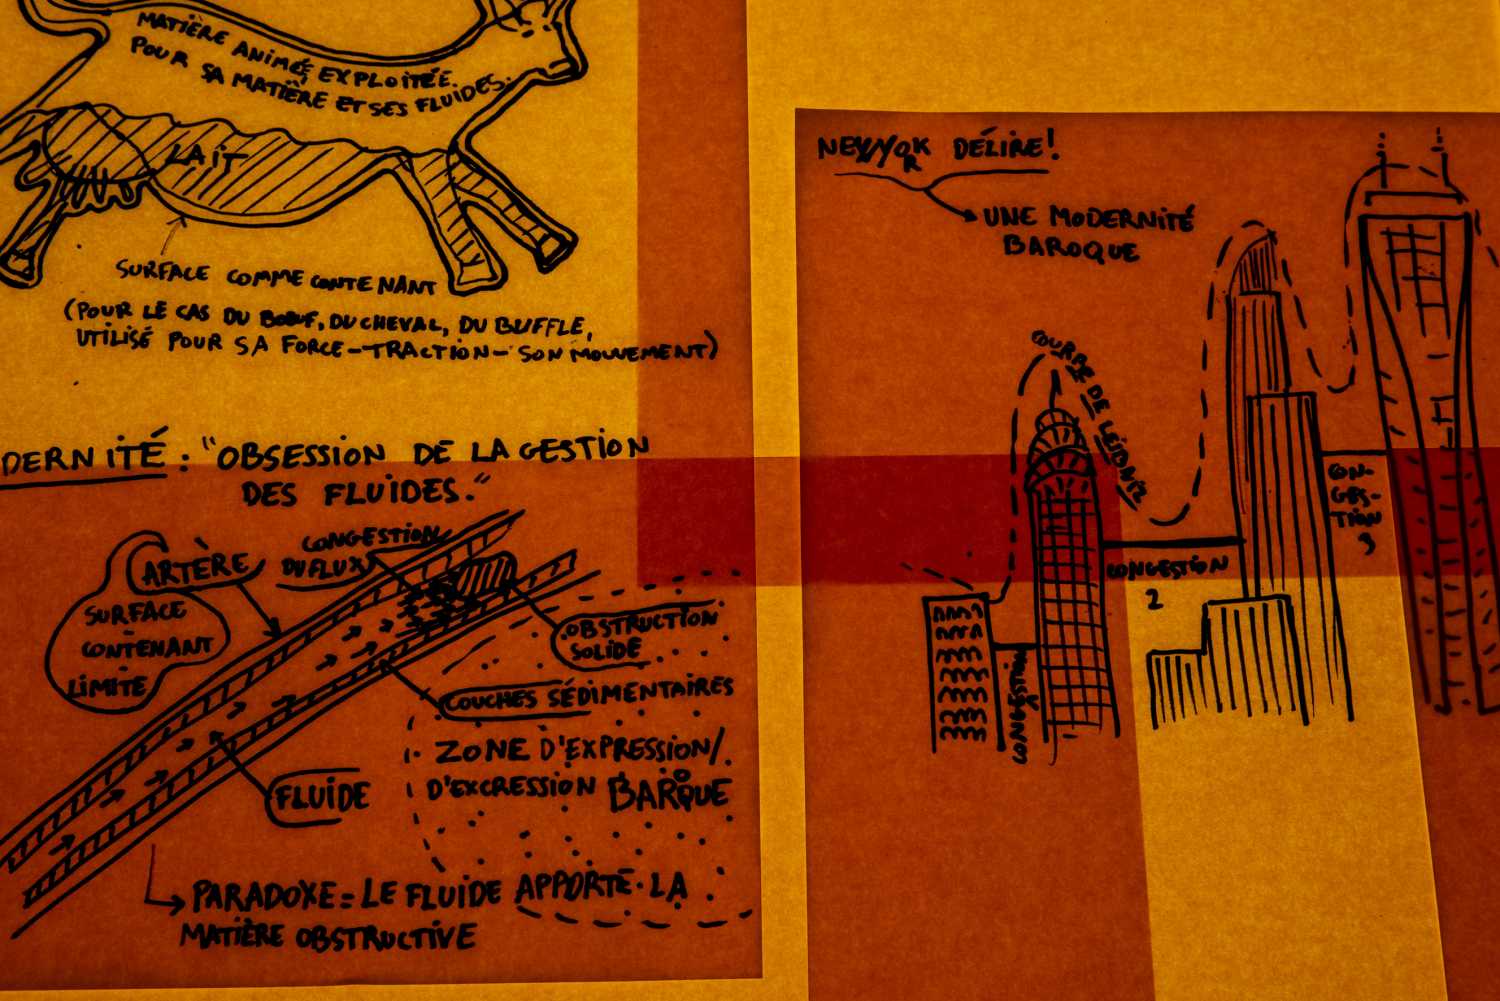 MATIÈRE ANIMÉE EXPLOITÉE.
POUR SA MATIÈRE ET SES FLUIDES.
LAIT
SURFACE COMME CONTENANT
(POUR LE CAS DU BŒUF, DU CHEVAL, DU BUFFLE,
UTILISÉ POUR SA FORCE-TRACTION- SON MOUVEMENT)
DERNITÉ : "OBSESSION DE LA GESTION
DES FLUIDES."
ARTÈRE
CONGESTION
DU FLUX
SURFACE
CONTENANT
LIMITE
OBSTRUCTION
SOLIDE
COUCHES SÉDIMENTAIRES
ZONE D'EXPRESSION/
D'EXCRESSION BAROQUE
FLUIDE
PARADOXE = LE FLUIDE APPORTE LA
MATIÈRE OBSTRUCTIVE
NEW YORK DÉLIRE!
UNE MODERNITÉ
BAROQUE
COURBE DE
CONGESTION
CONGESTION
2
CON-
GES-
TION
3